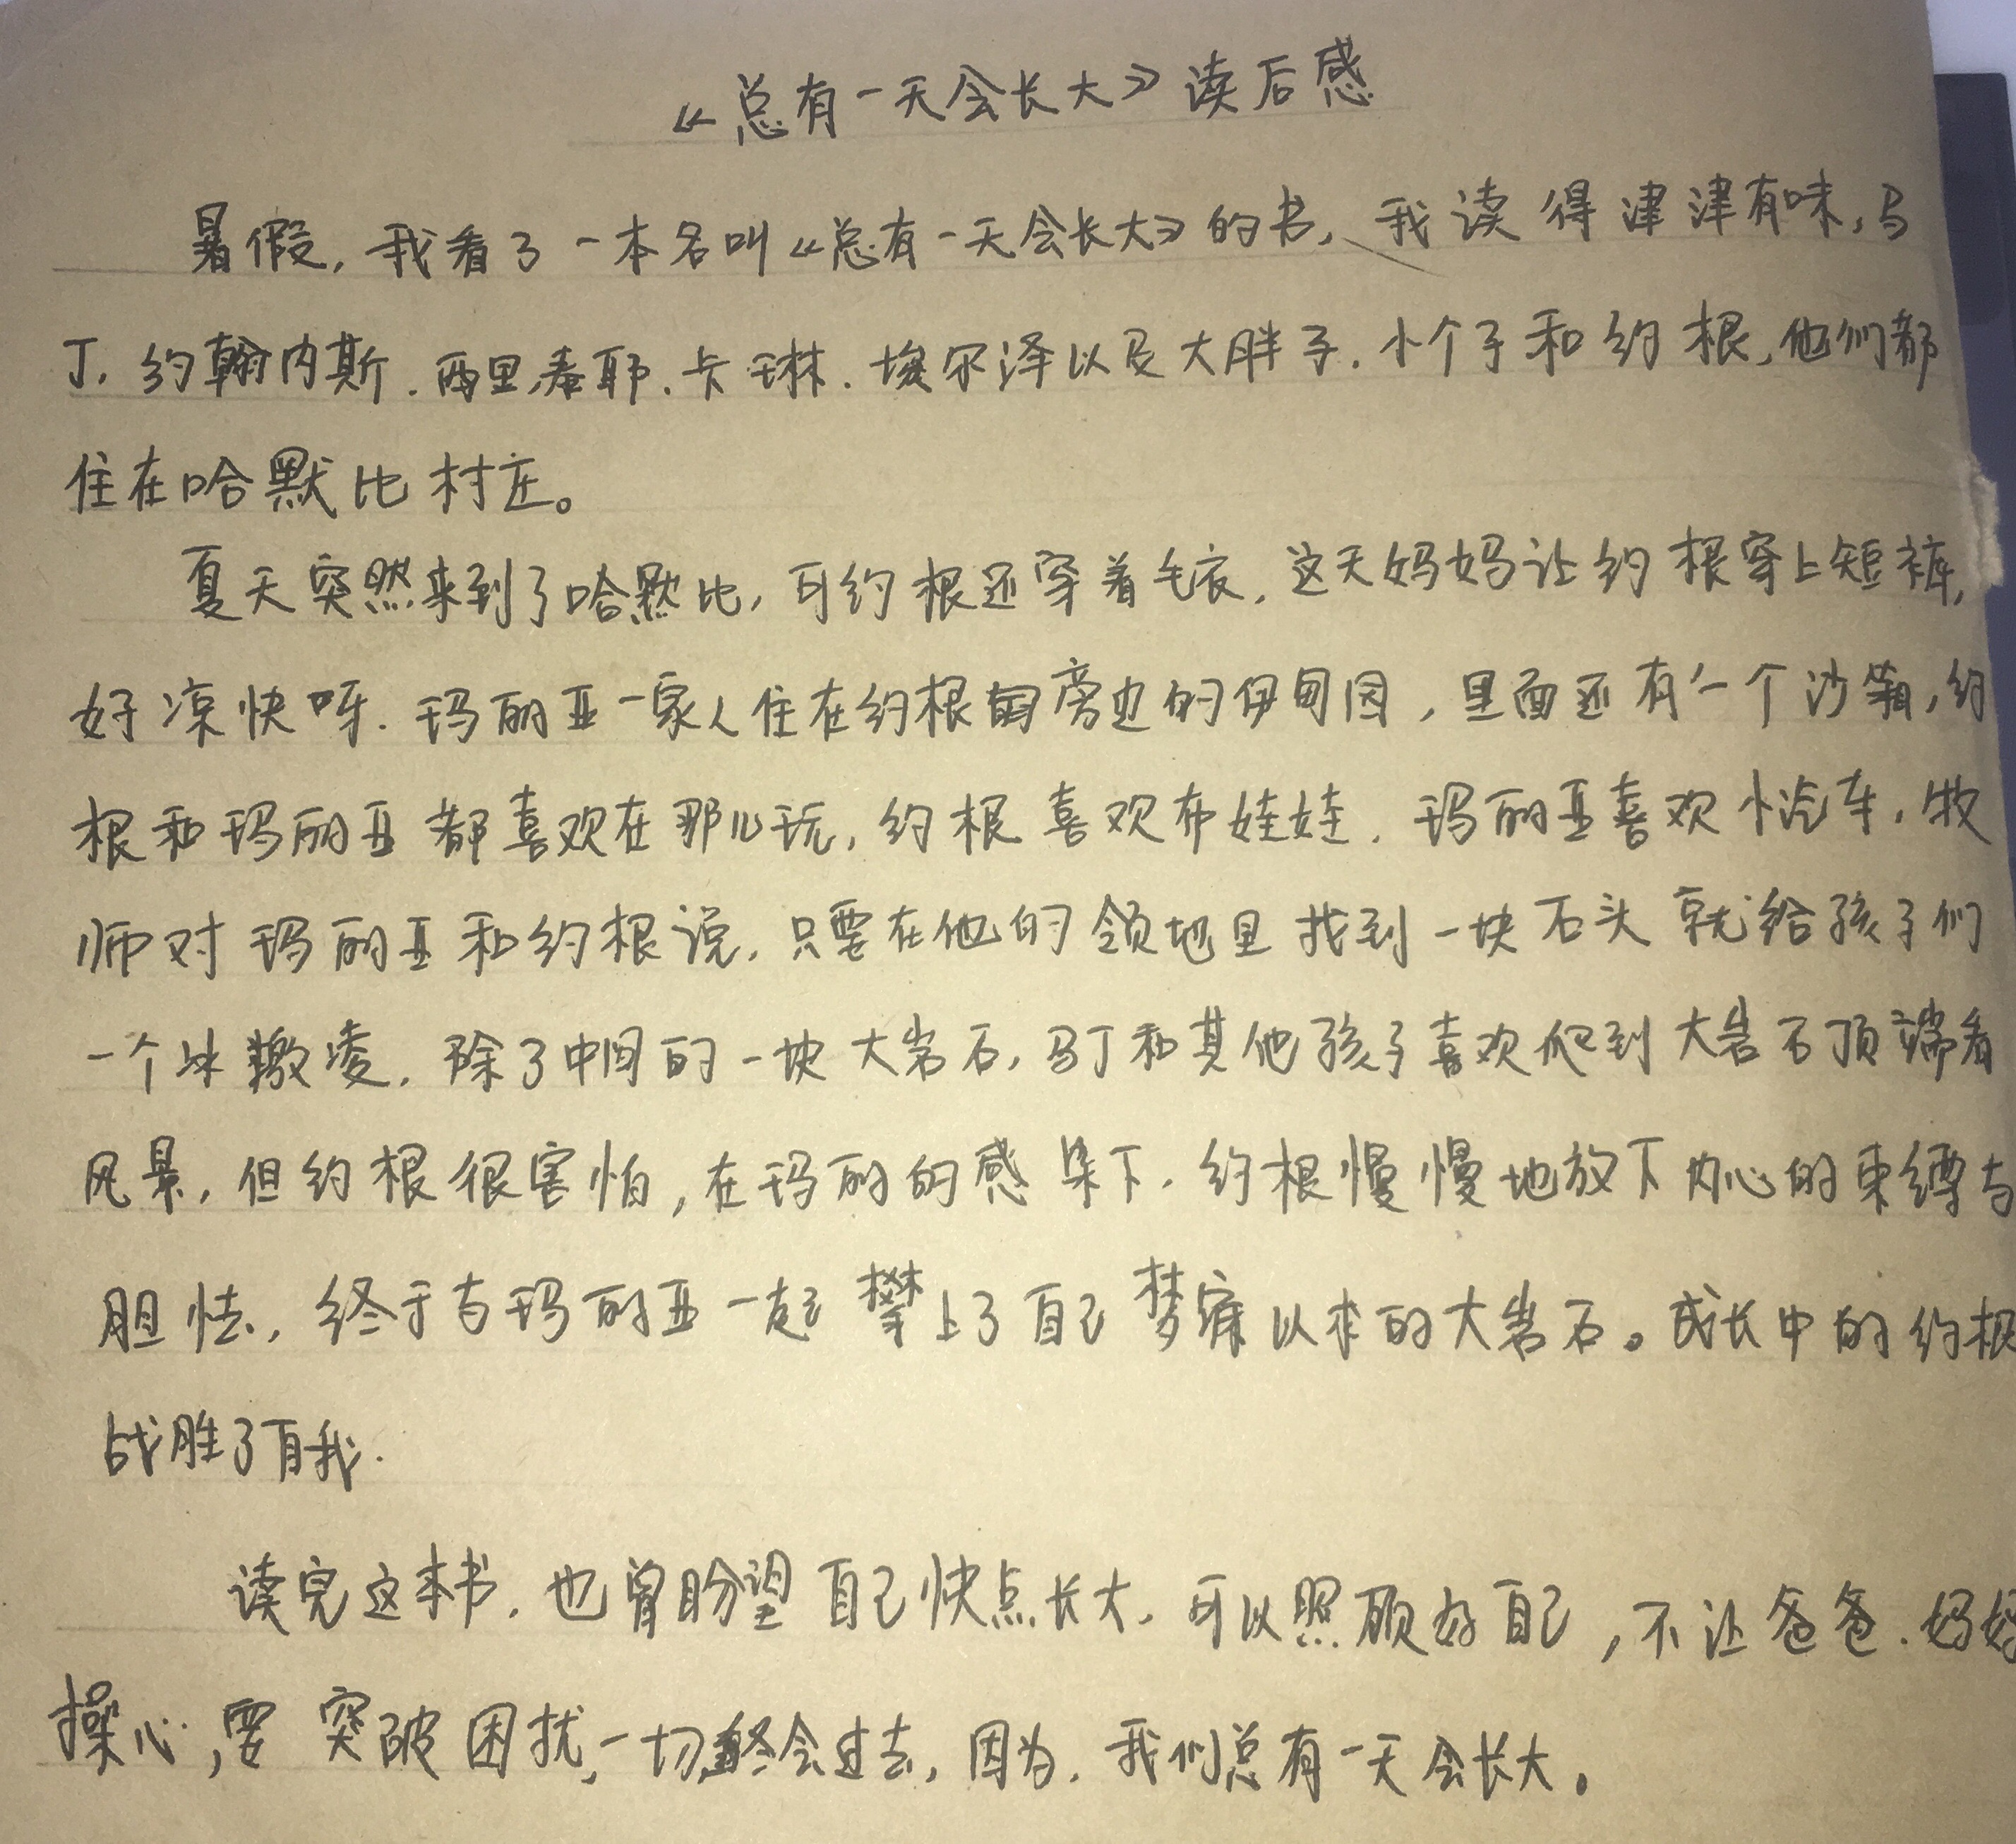 《总有一天会长大》读后感
暑假,我看了一本名叫《总有一天会长大》的书,我读得津津有味,马
丁、约翰内斯、西里泰耶、卡琳、埃尔泽以及大胖子、小个子和约根,他们都
住在哈默比村庄。
夏天突然来到了哈默比,可约根还穿着毛衣,这天妈妈让约根穿上短裤,
好凉快呀、玛丽亚一家人住在约根旁边的伊甸园,里面还有一个沙箱,约
根和玛丽亚都喜欢在那儿玩,约根喜欢布娃娃、玛丽亚喜欢小汽车,牧
师对玛丽亚和约根说,只要在他的领地里找到一块石头就给孩子们
一个冰激凌,除了中间的一块大岩石,马丁和其他孩子喜欢爬到大岩石顶端看
风景,但约根很害怕,在玛丽的感染下,约根慢慢地放下内心的束缚与
胆怯,终于与玛丽亚一起攀上了自己梦寐以求的大岩石。成长中的约根
战胜了自我.
读完这本书,也曾盼望自己快点长大,可以照顾好自己,不让爸爸、妈妈
操心,要突破困扰,一切终会过去,因为,我们总有一天会长大。